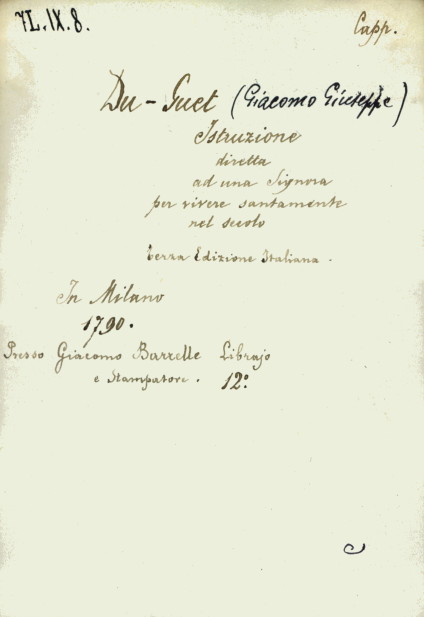 7L.IX.8.
Capp.
Du-Guet (Giacomo Giuseppe)
Istruzione
diretta
ad una Signora
per vivere santamente
nel secolo
Terza Edizione Italiana.
In Milano
1790.
Presso Giacomo Barrelle Librajo
e Stampatore. 12º